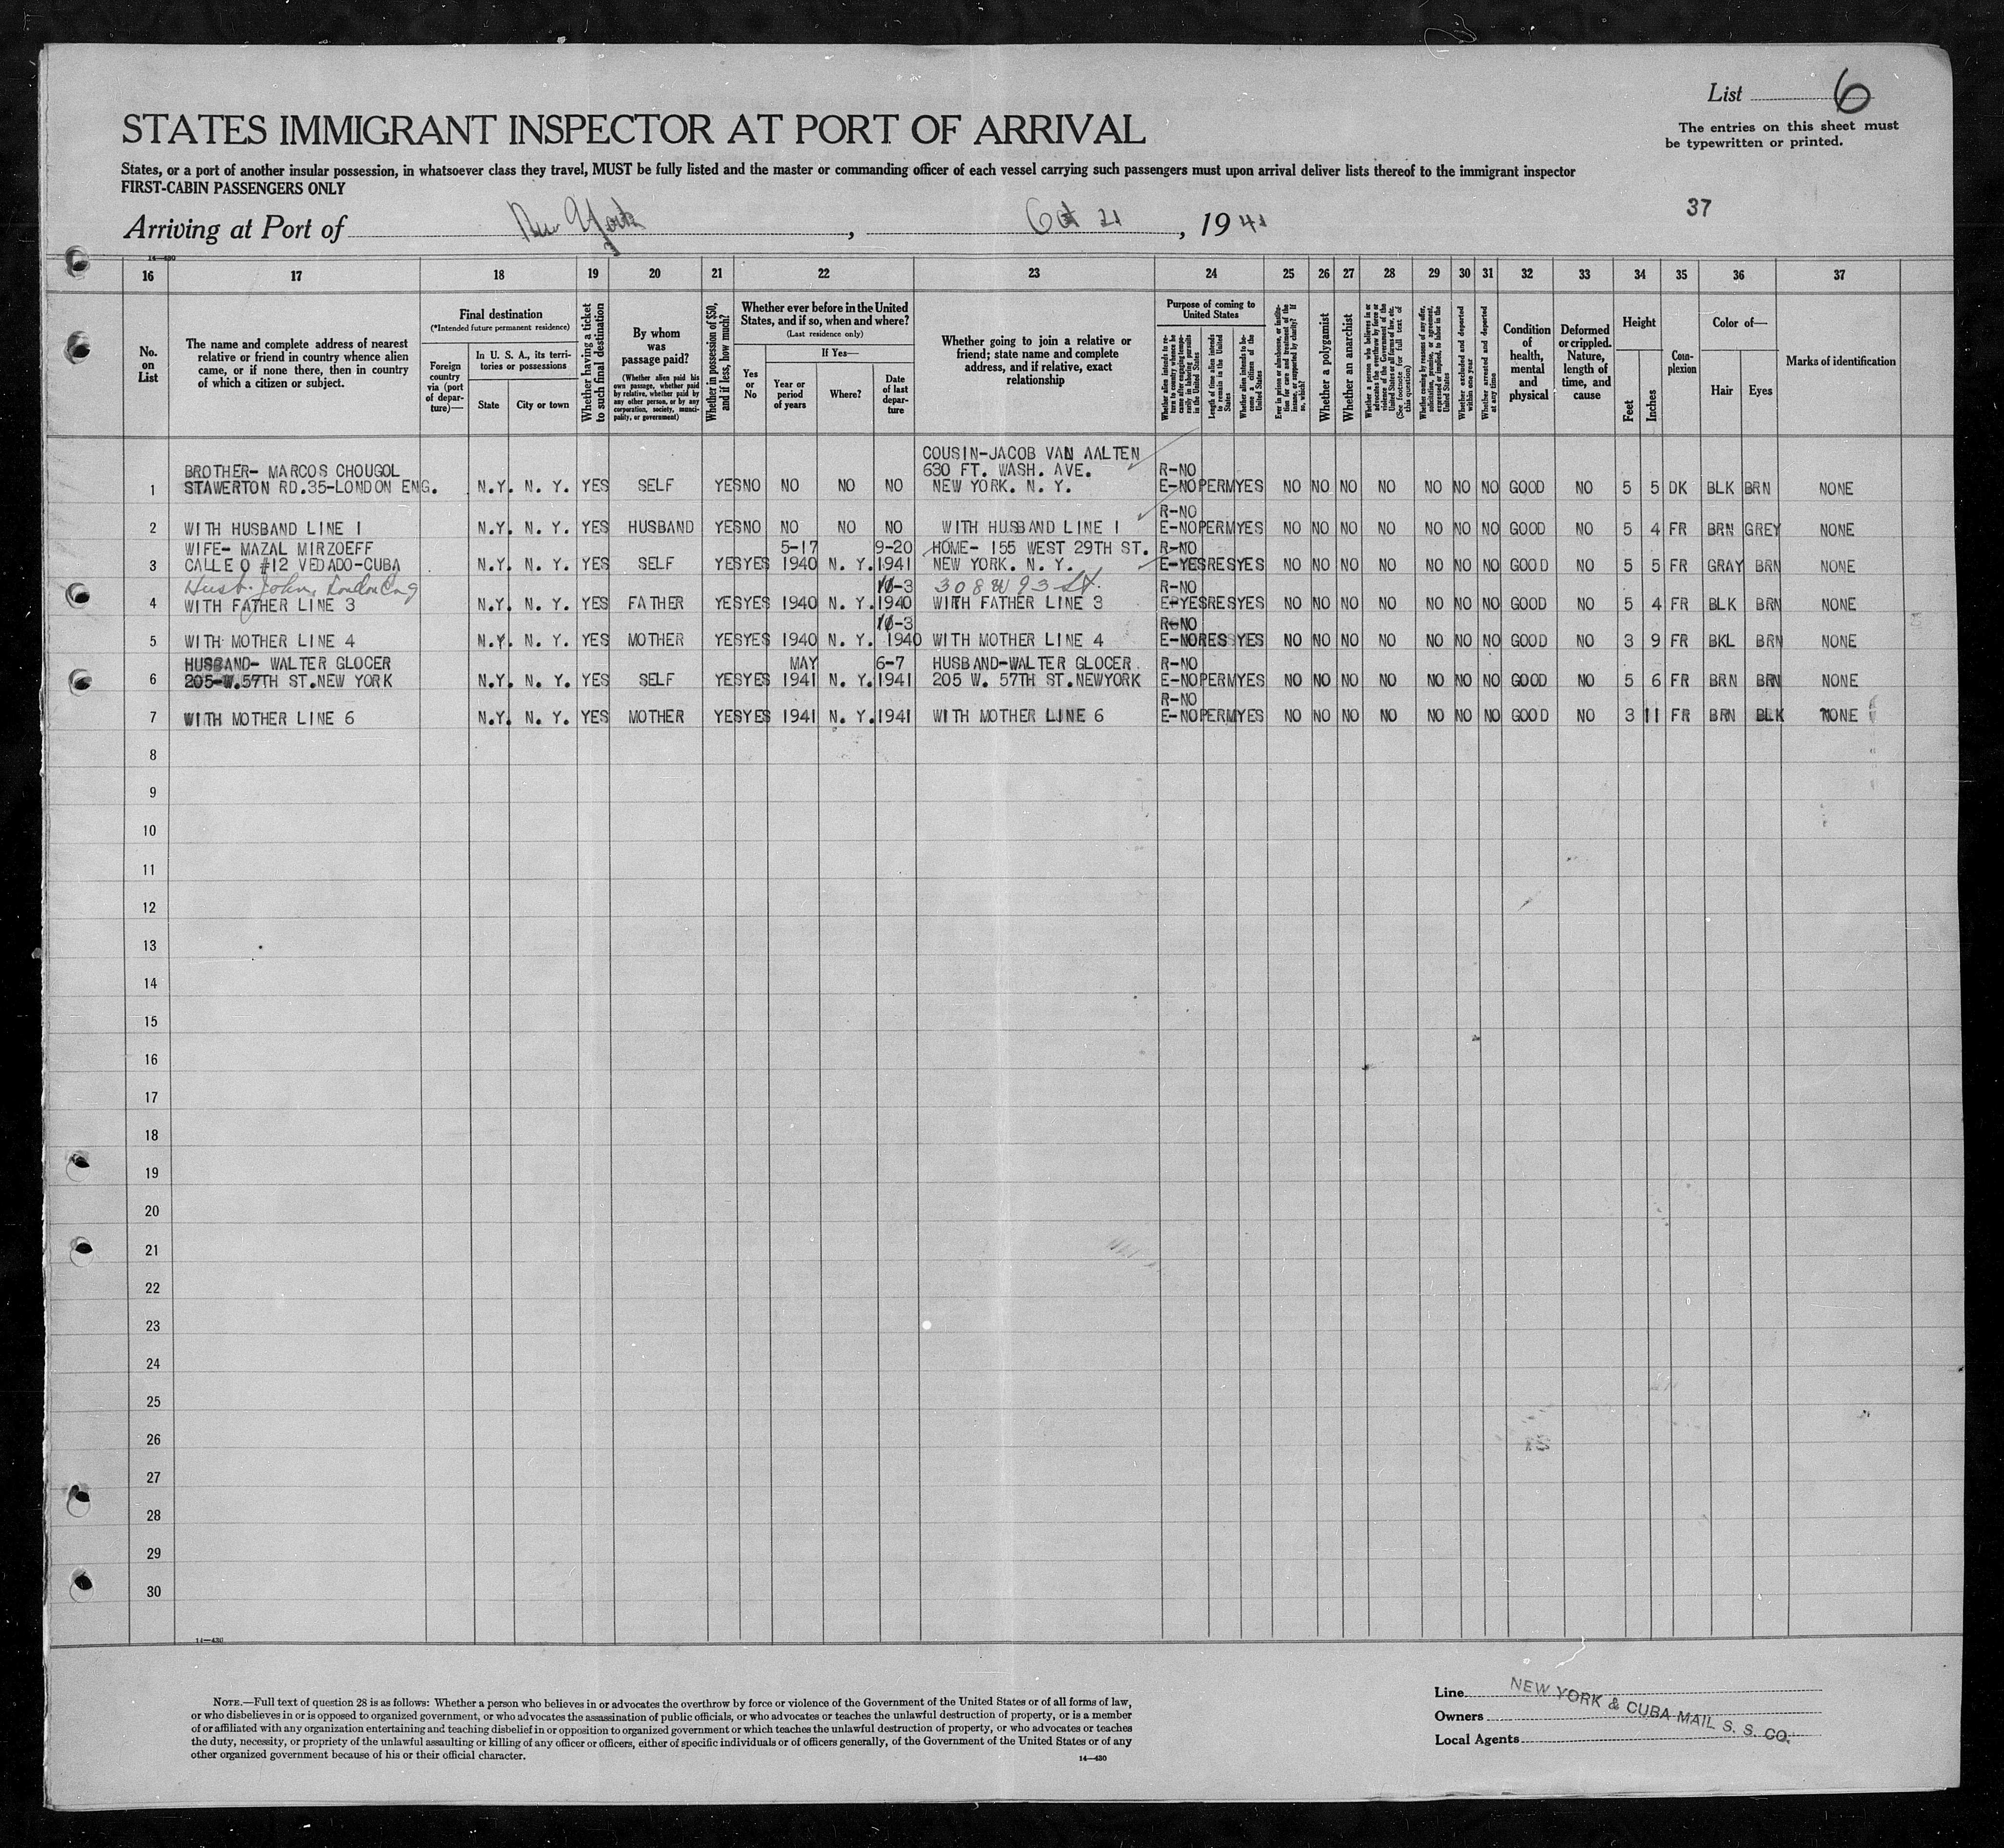 List 6
The entries on this sheet must
be typewritten or printed.
STATES IMMIGRANT INSPECTOR AT PORT OF ARRIVAL
States, or a port of another insular possession, in whatsoever class they travel, MUST be fully listed and the master or commanding officer of each vessel carrying such passengers must upon arrival deliver lists thereof to the immigrant inspector
FIRST-CABIN PASSENGERS ONLY
37
Arriving at Port of New York, Oct 21, 1941
14—430
16 17 18 19 20 21 22 23 24 25 26 27 28 29 30 31 32 33 34 35 36 37
No. on List
The name and complete address of nearest relative or friend in country whence alien came, or if none there, then in country of which a citizen or subject.
Final destination
(*Intended future permanent residence)
Foreign country via (port of departure)—
In U. S. A., its territories or possessions
State
City or town
Whether having a ticket to such final destination
By whom was passage paid?
(Whether alien paid his own passage, whether paid by relative, whether paid by any other person, or by any corporation, society, municipality, or government)
Whether in possession of $50, and if less, how much?
Whether ever before in the United States, and if so, when and where?
(Last residence only)
Yes or No
If Yes—
Year or period of years
Where?
Date of last departure
Whether going to join a relative or friend; state name and complete address, and if relative, exact relationship
Purpose of coming to United States
Whether alien intends to return to country whence he came after engaging temporarily in laboring pursuits in the United States
Length of time alien intends to remain in the United States
Whether alien intends to become a citizen of the United States
Ever in prison or almshouse, or institution for care and treatment of the insane, or supported by charity? If so, which?
Whether a polygamist
Whether an anarchist
Whether a person who believes in or advocates the overthrow by force or violence of the Government of the United States or all forms of law, etc. (See footnote for full text of this question)
Whether coming by reasons of any offer, solicitation, promise, or agreement, expressed or implied, to labor in the United States
Whether excluded and deported within one year
Whether arrested and deported at any time
Condition of health, mental and physical
Deformed or crippled. Nature, length of time, and cause
Height
Feet
Inches
Complexion
Color of—
Hair
Eyes
Marks of identification
1 BROTHER- MARCOS CHOUGOL
STAWERTON RD.35-LONDON ENG. N.Y. N. Y. YES SELF YES NO NO NO NO COUSIN-JACOB VAN AALTEN
630 FT. WASH. AVE.
NEW YORK. N. Y. R-NO
E-NO PERM YES NO NO NO NO NO NO NO GOOD NO 5 5 DK BLK BRN NONE
2 WITH HUSBAND LINE 1 N.Y. N. Y. YES HUSBAND YES NO NO NO NO WITH HUSBAND LINE 1 R-NO
E-NO PERM YES NO NO NO NO NO NO NO GOOD NO 5 4 FR BRN GREY NONE
3 WIFE- MAZAL MIRZOEFF
CALLE O #12 VEDADO-CUBA N.Y. N. Y. YES SELF YES YES 5-17
1940 N. Y. 9-20
1941 HOME- 155 WEST 29TH ST.
NEW YORK. N. Y. R-NO
E-YES RES YES NO NO NO NO NO NO NO GOOD NO 5 5 FR GRAY BRN NONE
4 Husb. John, London Eng
WITH FATHER LINE 3 N.Y. N. Y. YES FATHER YES YES 1940 N. Y. 10-3
1940 308 W 93 St.
WITH FATHER LINE 3 R-NO
E-YES RES YES NO NO NO NO NO NO NO GOOD NO 5 4 FR BLK BRN NONE
5 WITH MOTHER LINE 4 N.Y. N. Y. YES MOTHER YES YES 1940 N. Y. 10-3
1940 WITH MOTHER LINE 4 R-NO
E-NO RES YES NO NO NO NO NO NO NO GOOD NO 3 9 FR BKL BRN NONE
6 HUSBAND- WALTER GLOCER
205-W.57TH ST.NEW YORK N.Y. N. Y. YES SELF YES YES MAY
1941 N. Y. 6-7
1941 HUSBAND-WALTER GLOCER.
205 W. 57TH ST.NEWYORK R-NO
E-NO PERM YES NO NO NO NO NO NO NO GOOD NO 5 6 FR BRN BRN NONE
7 WITH MOTHER LINE 6 N.Y. N. Y. YES MOTHER YES YES 1941 N. Y. 1941 WITH MOTHER LINE 6 R-NO
E-NO PERM YES NO NO NO NO NO NO NO GOOD NO 3 11 FR BRN BLK NONE
8
9
10
11
12
13
14
15
16
17
18
19
20
21
22
23
24
25
26
27
28
29
30
14—430
NOTE.—Full text of question 28 is as follows: Whether a person who believes in or advocates the overthrow by force or violence of the Government of the United States or of all forms of law,
or who disbelieves in or is opposed to organized government, or who advocates the assassination of public officials, or who advocates or teaches the unlawful destruction of property, or is a member
of or affiliated with any organization entertaining and teaching disbelief in or opposition to organized government or which teaches the unlawful destruction of property, or who advocates or teaches
the duty, necessity, or propriety of the unlawful assaulting or killing of any officer or officers, either of specific individuals or of officers generally, of the Government of the United States or of any
other organized government because of his or their official character.
14—430
Line
Owners
Local Agents
NEW YORK & CUBA MAIL S. S. CO.